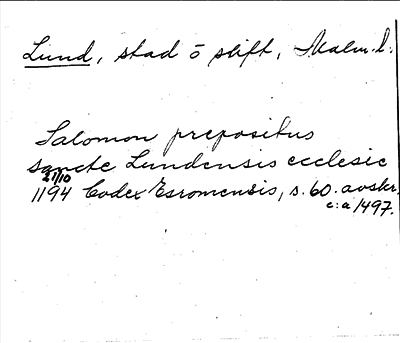 Lund, stad o stift, Malm. l.
Salomon prepositus
sancte Lundensis ecclesie
21/10
1194 Codex Esromensis, s. 60. avskr.
c:a 1497.